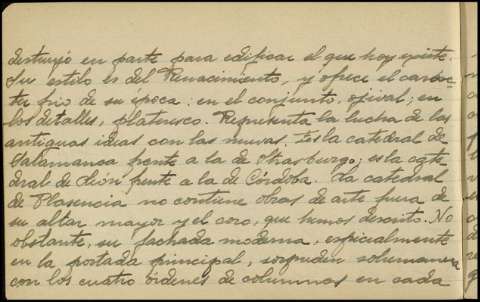 destruyó en parte para edificar el que hoy existe.
Su estilo es del Renacimiento, y ofrece el carác-
ter frio de su época: en el conjunto, ojival; en
los detalles, plateresco. Representa la lucha de las
antiguas ideas con las nuevas. Es la catedral de
Salamanca frente a la de Strasburgo; es la cate
dral de León frente a la de Córdoba. La catedral
de Plasencia no contiene obras de arte fuera de
su altar mayor y el coro, que hemos descrito. No
obstante, su fachada moderna, especialmente
en la portada principal, sorprende
con los cuatro órdenes de columnas en cada